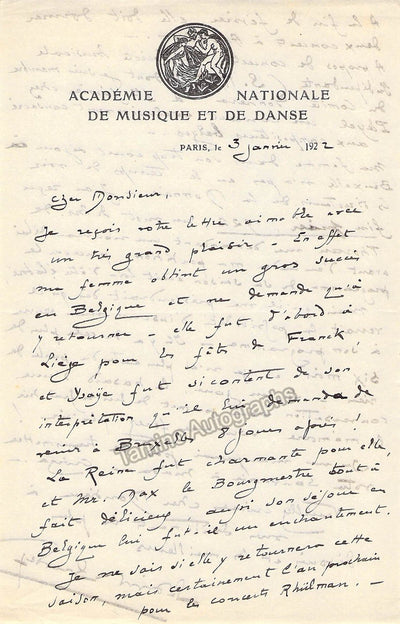 ACADÉMIE NATIONALE
DE MUSIQUE ET DE DANSE
PARIS, le 3 janvier 1922
Cher Monsieur,
Je reçois votre lettre aimable avec
un très grand plaisir - En effet
ma femme obtint un gros succès
en Belgique et ne demande qu'à
y retourner - elle fut d'abord à
Liège pour les fêtes de Franck
et Ysaÿe fut si content de son
interprétation qu'il lui demanda de
venir à Bruxelles 8 jours après!
Tamino Autographs
La Reine fut charmante pour elle,
et Mr. Max le Bourgmestre tout à
fait délicieux aussi son séjour en
Belgique lui fut-il un enchantement.
Je ne sais si elle y retournera cette
saison, mais certainement l'an prochain
pour les concerts Rhülman. -